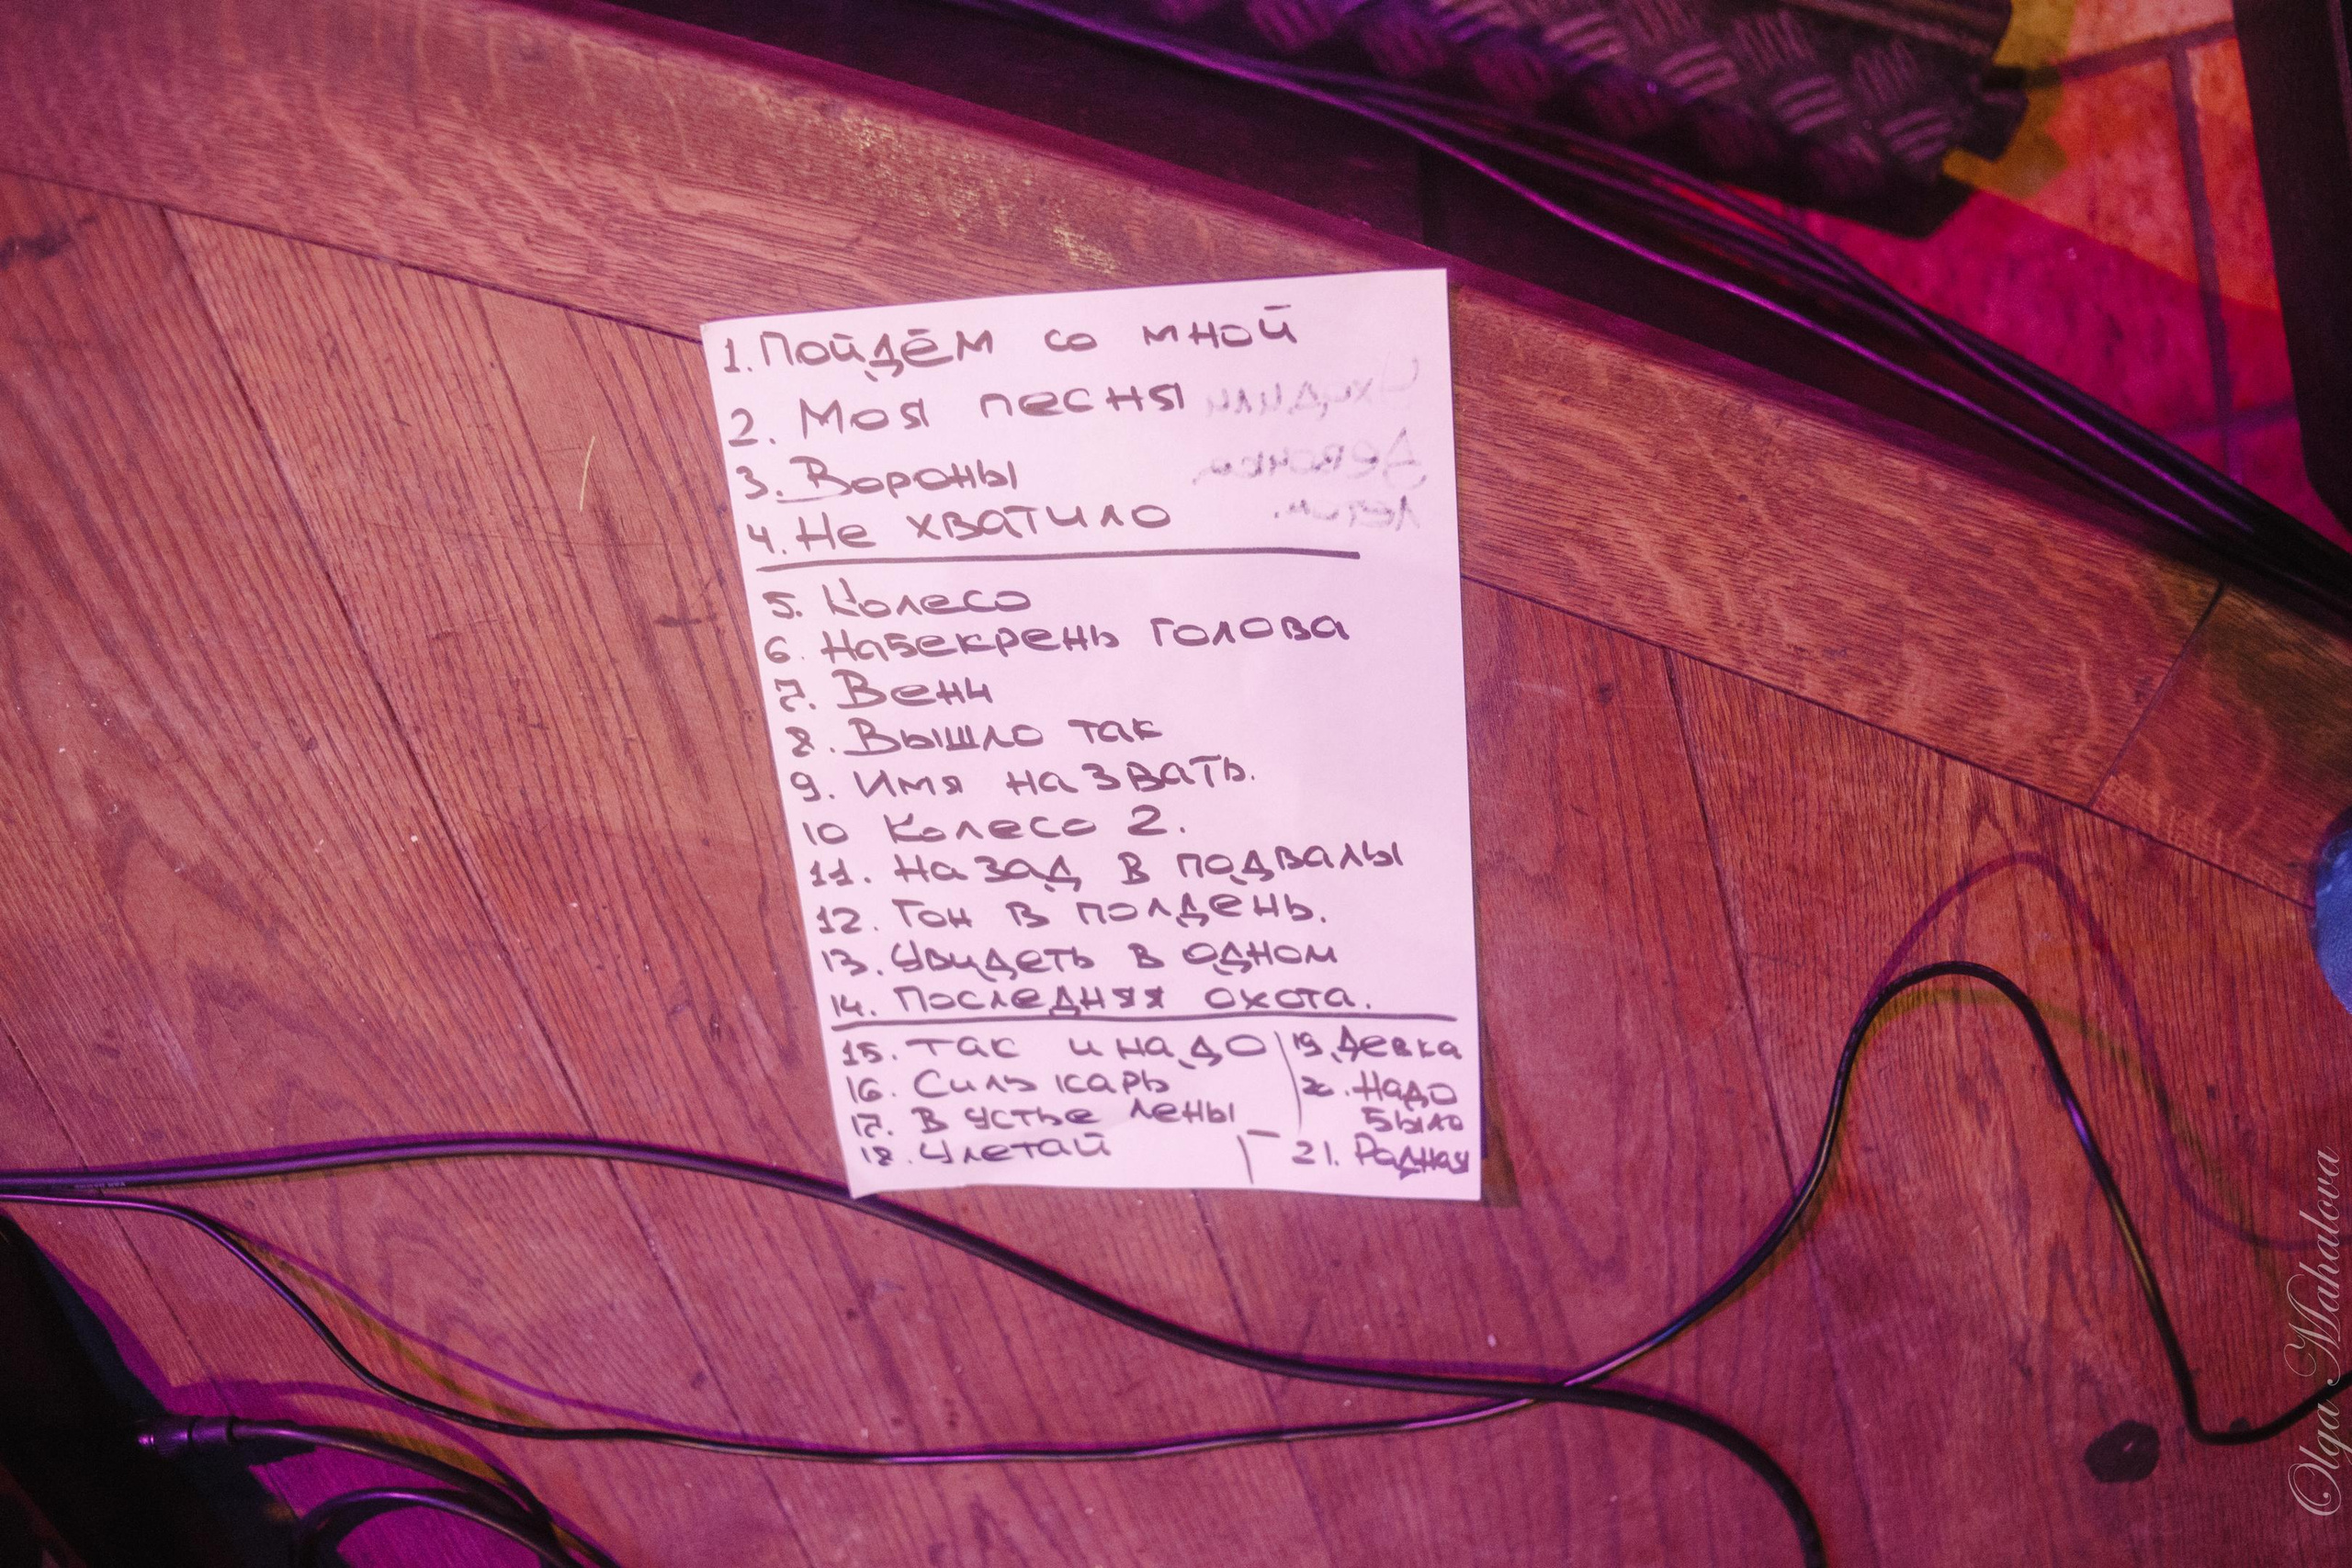 1. Пойдём со мной
2. Моя песня
3. Вороны
4. Не хватило
5. Колесо
6. Набекрень голова
7. Вени
8. Вышло так
9. Имя назвать.
10 Колесо 2.
11. Назад в подвалы
12. Гон в полдень.
13. Увидеть в одном
14. Последняя охота.
15. Так и надо
16. Силь карь
17. В устье Лены
18. Улетай
19. Девка
20. Надо
было
21. Радная
Olga Mahalova